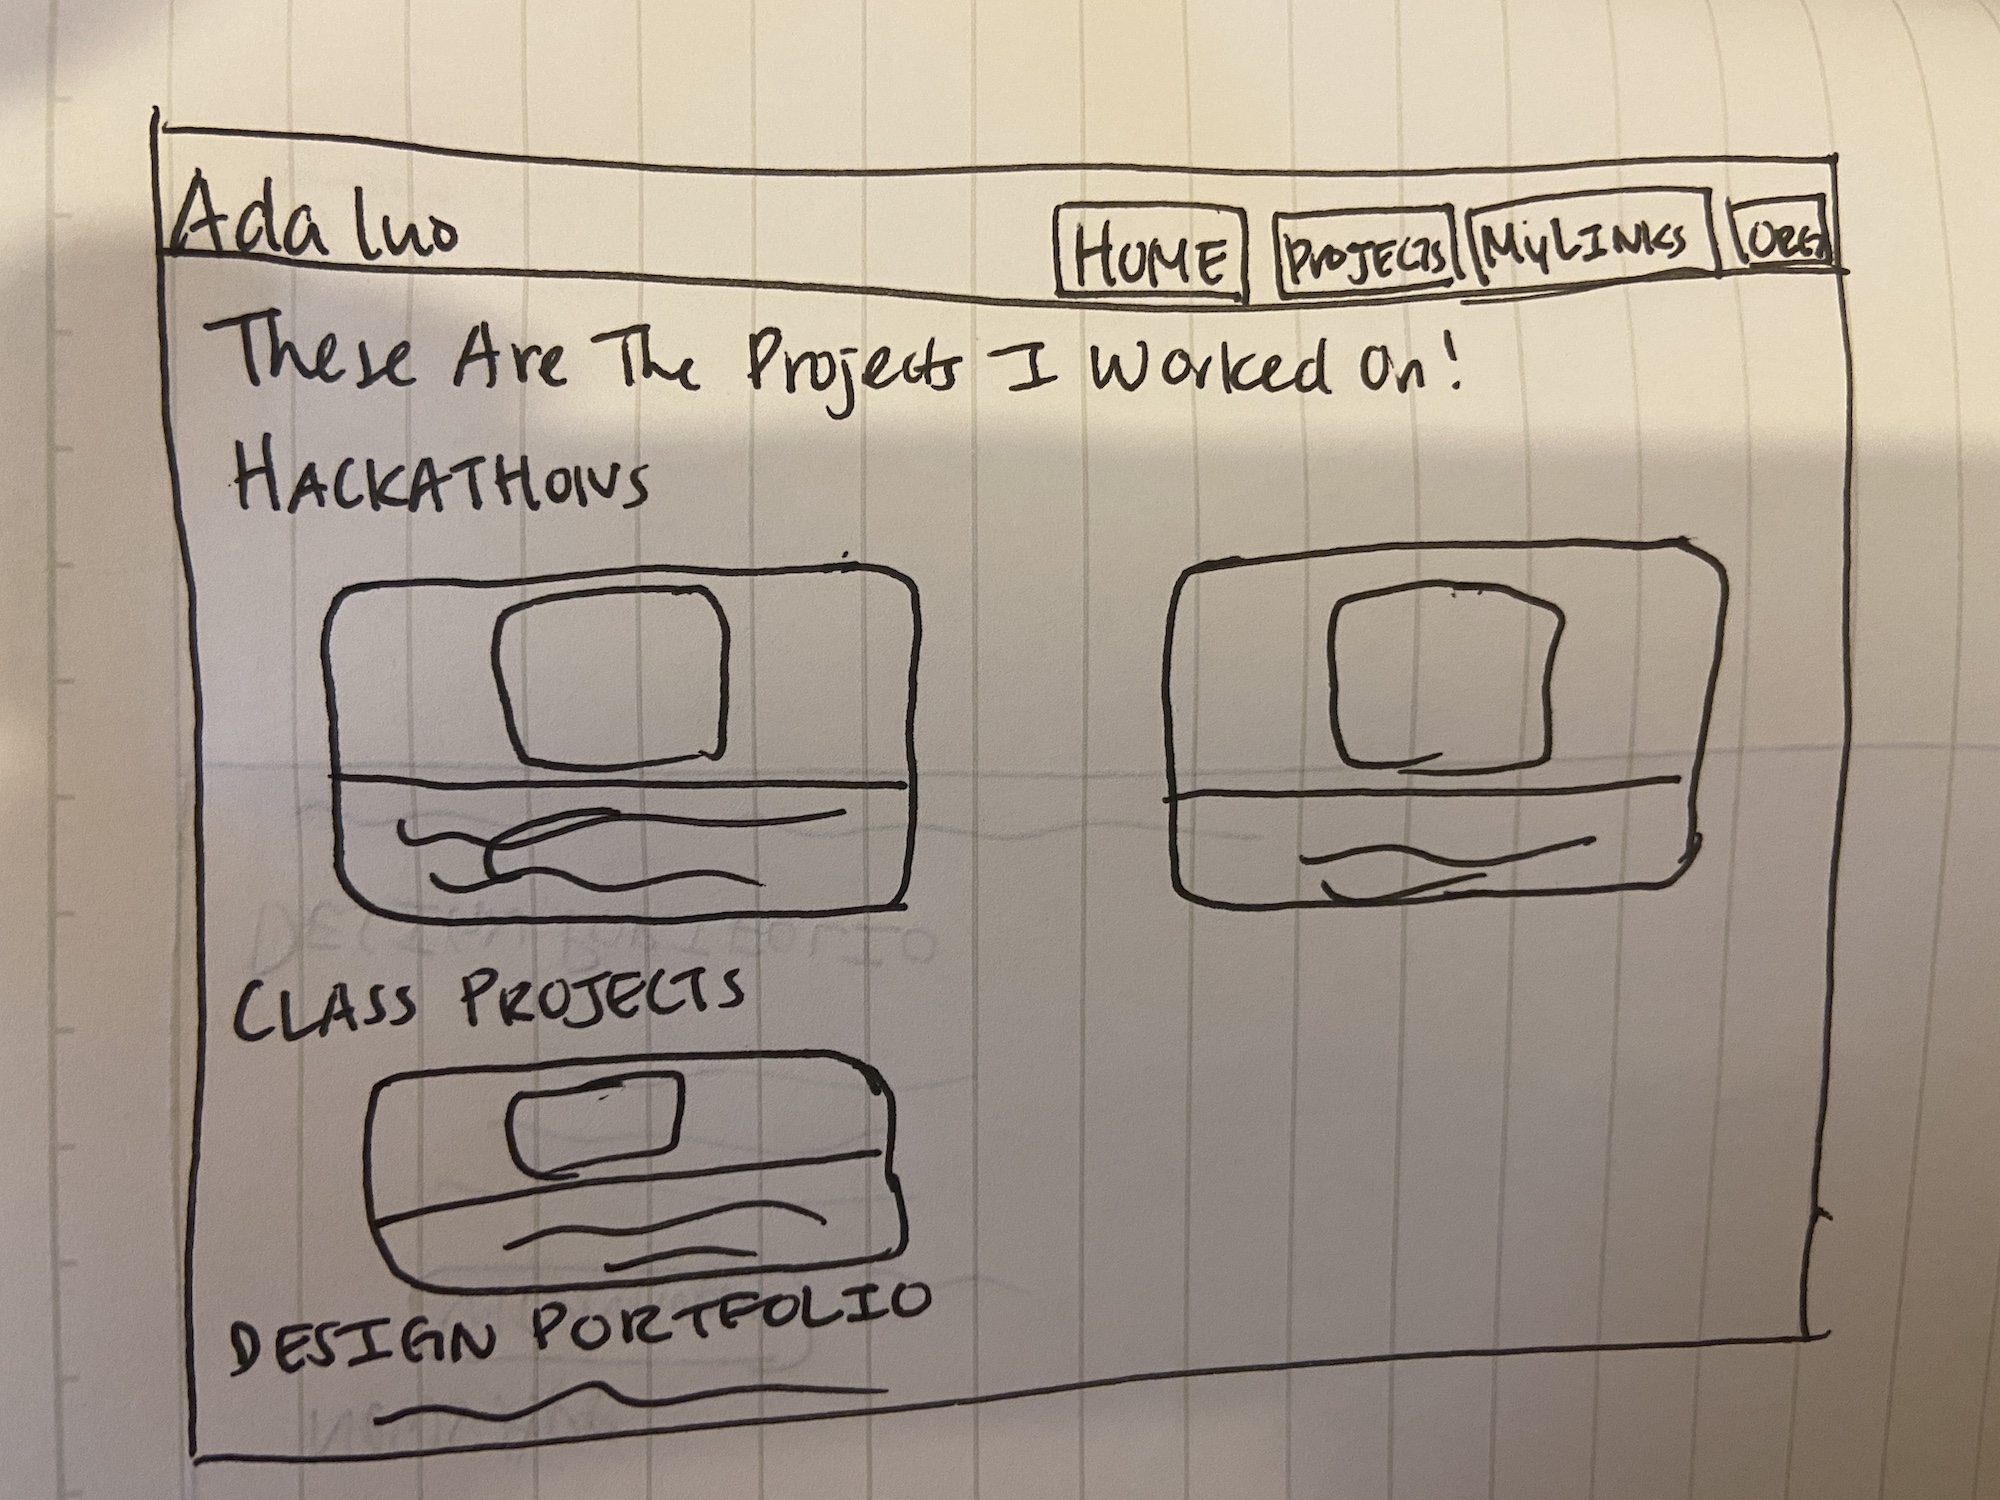 Ada luo
HOME PROJECTS MYLINKS ORG
These Are The Projects I Worked On!
HACKATHONS
CLASS PROJECTS
DESIGN PORTFOLIO